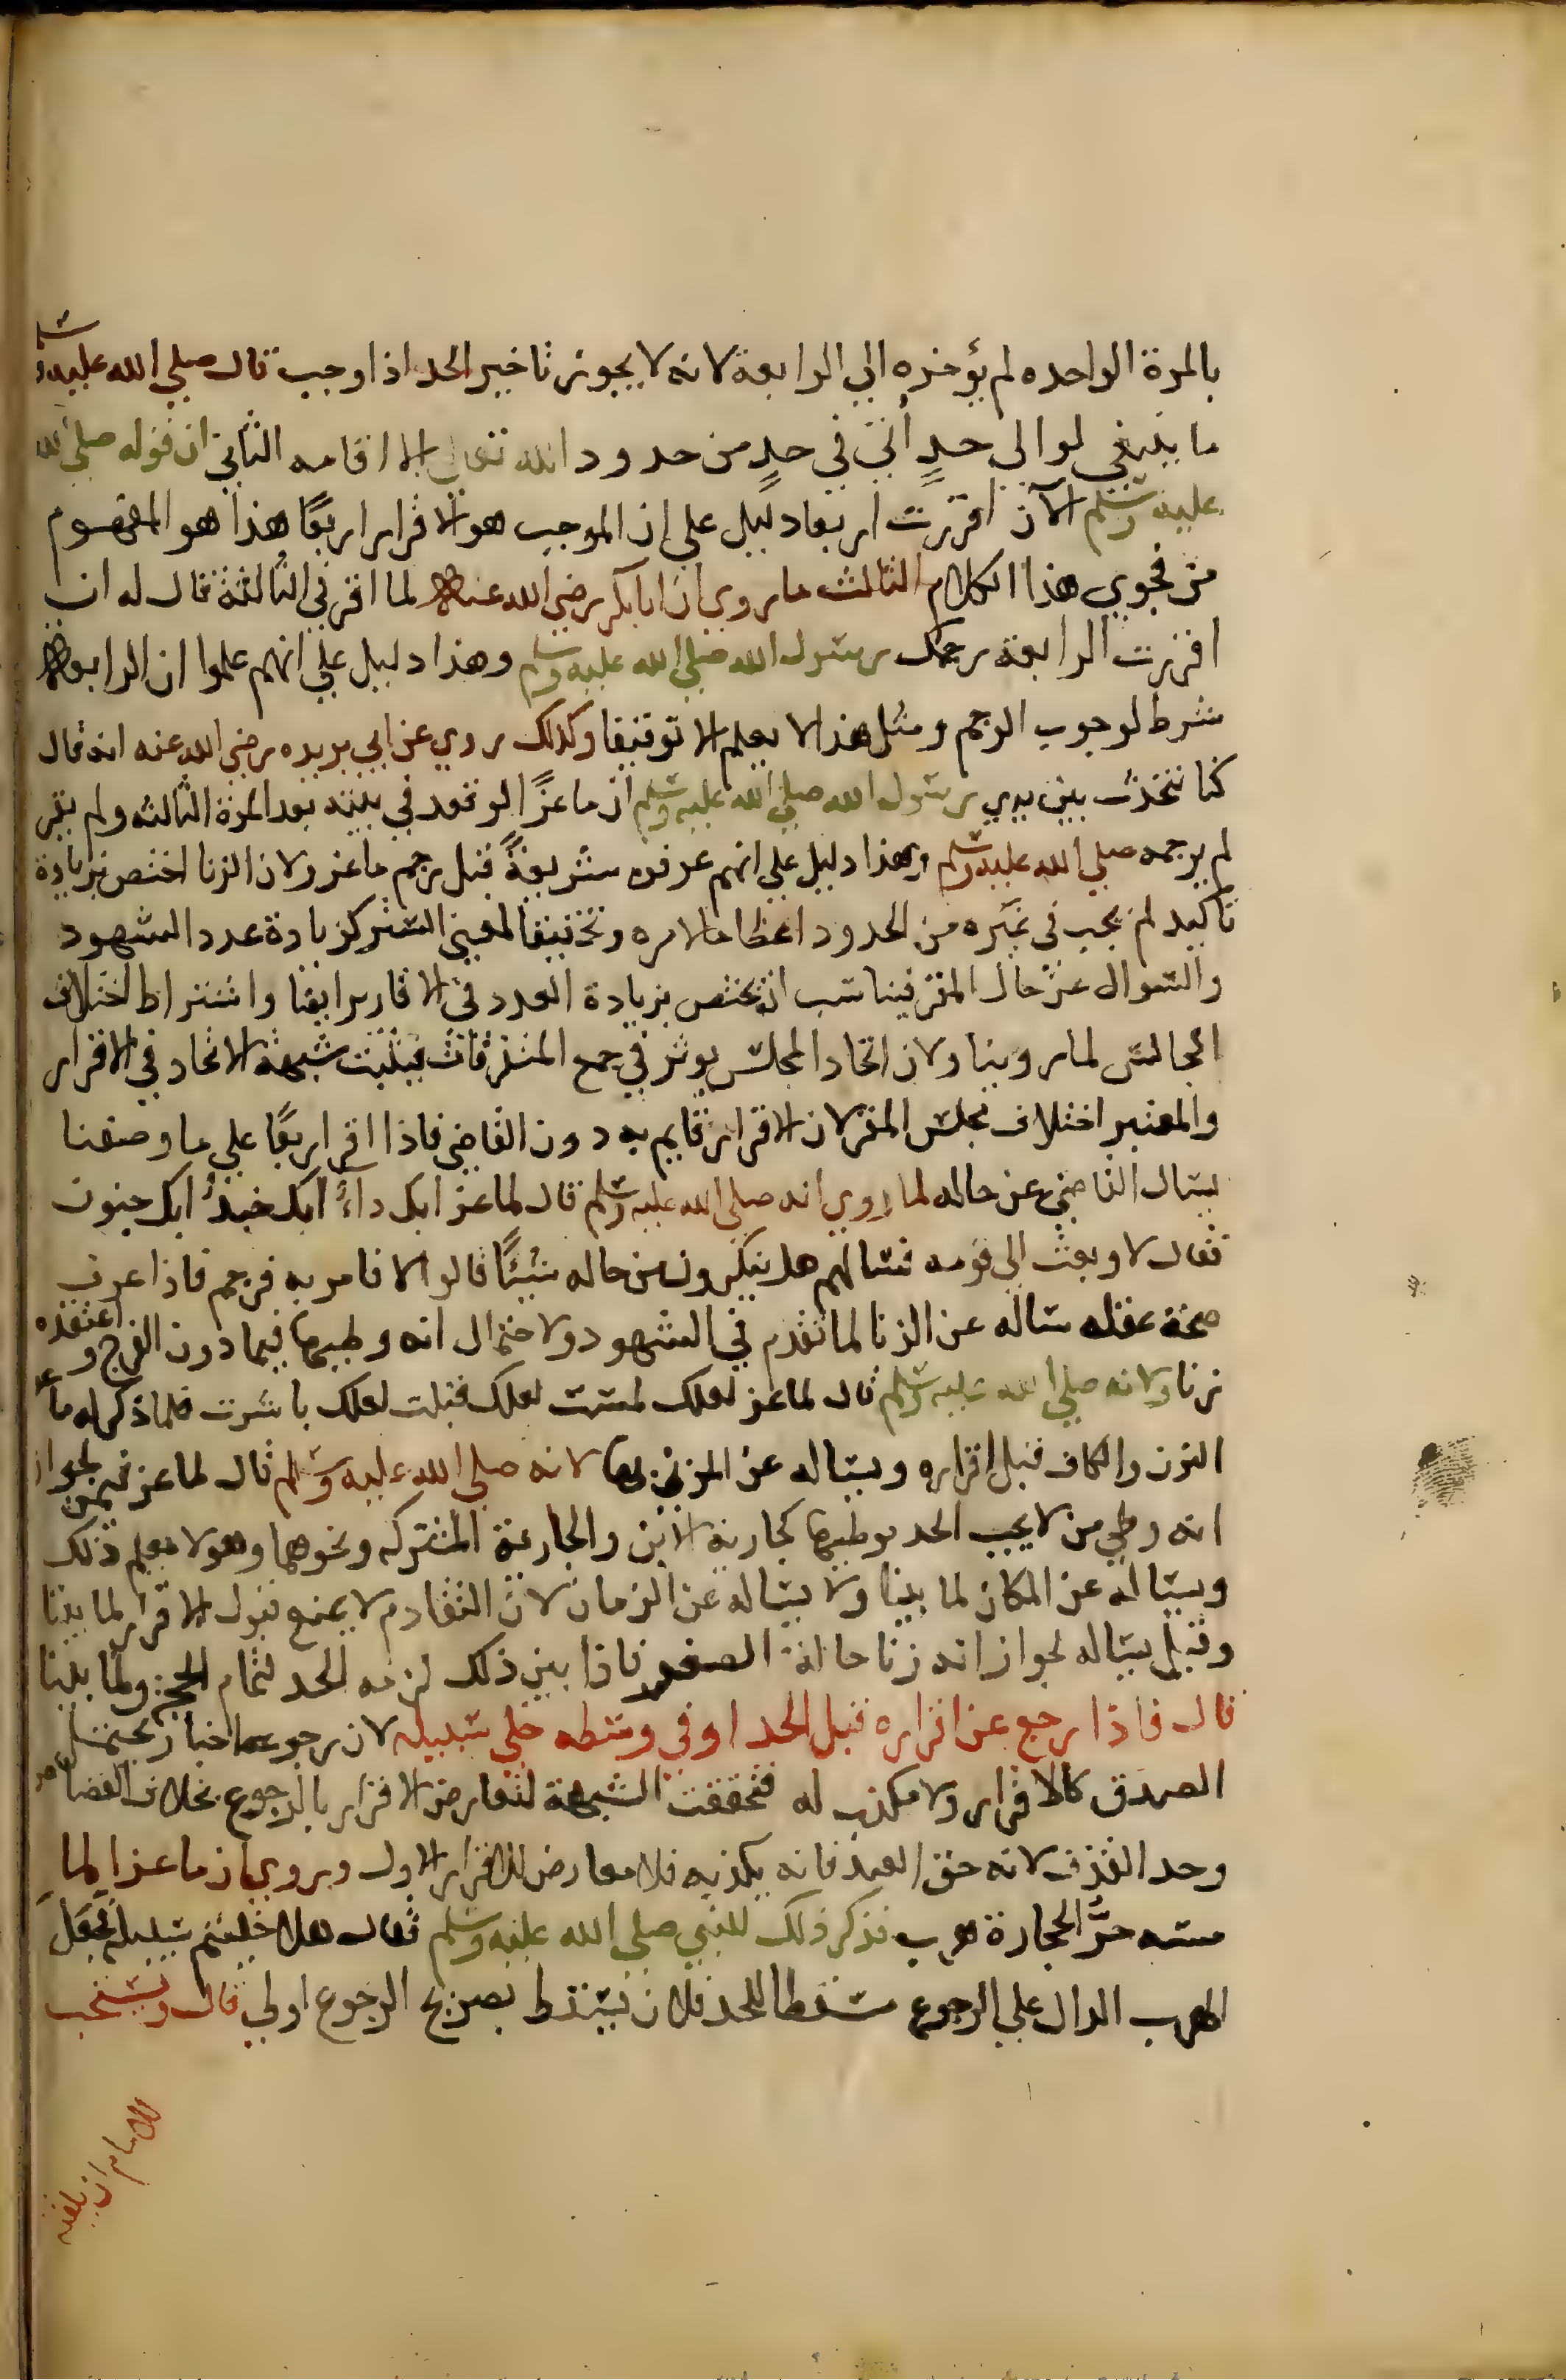 بالمرة الواحده لم يؤخره الي الرابعة لانه لا يجوز تاخير الحد اذا وجب قال صلي الله عليه وسلم
ما ينبغي لوالي حدٍ أتي في حدٍ من حدود الله تعالي الا اقامه الثاني ان قوله صلي الله
عليه وسلم الآن اقررت اربعا دليل علي ان الموجب هو الاقرار اربعًا هذا هو المفهوم
من فحوي هذا الكلام الثالث ما روي ان ابا بكر رضي الله عنه لما اقر في الثالثة قال له ان
اقررت الرابعة رجمك رسول الله صلي الله عليه وسلم وهذا دليل علي انهم علموا ان الرابعة
شرط لوجوب الرجم ومثل هذا لا يعلم الا توقيفا وكذلك روي عن ابي بريده رضي الله عنه انه قال
كنا نتحدث بين يدي رسول الله صلي الله عليه وسلم ان ماعزًا لو قعد في بيته بعد المرة الثالثه ولم يقر
لم يرجمه صلي الله عليه وسلم وهذا دليل علي انهم عرفوه شريعةً قبل رجم ماعز ولان الزنا اختص بزيادة
تاكيد لم يجب في غيره من الحدود اعظاما لامره وتحقيقا لمعني الستر كزيادة عدد الشهود
والسوال عن حال المقر فيناسب ان يختص بزيادة العدد في الاقارير ايضا واشتراط اختلاف
المجالس لما روينا ولان اتحاد المجلس يوثر في جمع المتفرقات فيثبت شبهة الاتحاد في الاقرار
والمعتبر اختلاف مجلس المقر لان الاقرار قايم به دون القاضي فاذا اقر اربعًا علي ما وصفنا
يسال القاضي عن حاله لما روي انه صلي الله عليه وسلم قال لماعز ابك داءٌ ابك خبلٌ ابك جنون
فقال لا وبعث الي قومه فسالهم هل تنكرون من حاله شيئًا قالوا لا فامر به فرجم فاذا عرف
صحة عقله ساله عن الزنا لما تقدم في الشهود ولاحتمال انه وطيها فيما دون الفرج واعتقده
زنا ولانه صلي الله عليه وسلم قال لماعز لعلك لمست لعلك قبلت لعلك باشرت فلما ذكر له ماعز
النون والكاف قبل اقراره ويساله عن المزني بها لانه صلي الله عليه وسلم قال لماعز فيمن لجواز
انه وطي من لا يجب الحد بوطيها كجارية الابن والجارية المشتركه ونحوهما وهو لا يعلم ذلك
ويساله عن المكان لما بينا ولا يساله عن الزمان لان التقادم لا يمنع قبول الاقرار لما بينا
وقيل يساله لجواز انه زنا حالة الصغر فاذا بين ذلك لزمه الحد لتمام الحجة ولما بينا
قال فاذا رجع عن اقراره قبل الحد او في وسطه خلي سبيله لان رجوعه اخبار يحتمل
الصدق كالاقرار ولا مكذب له فتحققت الشبهة لتعارض الاقرار بالرجوع بخلاف القصاص
وحد القذف لانه حق العبد فانه يكذبه فلا معارض للاقرار الاول وبروي ان ماعزا لما
مسه حرُّ الحجارة هرب فذكر ذلك للنبي صلي الله عليه وسلم فقال هلا خليتم سبيله فجعل
الهرب الدال علي الرجوع مسقطا للحد فلان يسقط بصريح الرجوع اولي قال ويستحب
للامام ان يلقنه